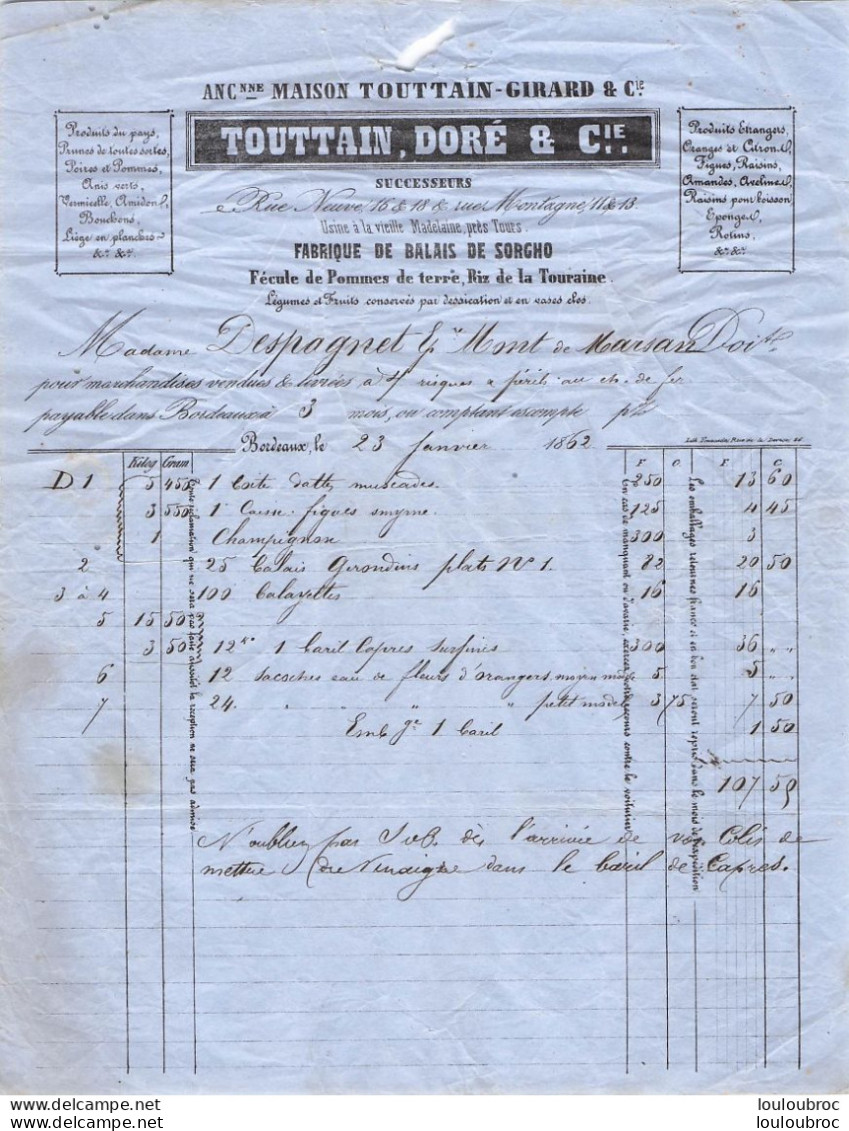 ANCNNE MAISON TOUTTAIN-GIRARD & Cie
TOUTTAIN, DORÉ & CIE.
SUCCESSEURS
Rue Neuve, 16 & 18 & rue Montagne, 11 & 13
Usine à la vieille Madelaine, près Tours
FABRIQUE DE BALAIS DE SORGHO
Fécule de Pommes de terre, Riz de la Touraine.
Légumes et Fruits conservés par dessication et en vases clos.
Produits du pays,
Prunes de toutes sortes,
Poires et Pommes,
Anis verts,
Vermicelle, Amidon,
Bouchons,
Liège en planches
&a &a
Produits Etrangers,
Oranges et Citrons,
Figues, Raisins,
Amandes, Avelines,
Raisins pour boisson
Eponges,
Rotins,
&a &a
Madame Despagnet Mont de Marsan Doit
pour marchandises vendues & livrées à risques & périls au ch. de fer
payable dans Bordeaux à 3 mois, ou comptant escompte
Bordeaux, le 23 Janvier 1862
Kilog Gram F C F C
D 1 5 450 1 Boite dattes muscades 250 13 60
3 550 1 Caisse figues smyrne 125 4 45
1 Champignon 300 3
2 25 balais Girondins plats No 1. 82 20 50
3 à 4 100 balayettes 16 16
5 15 50
3 50 12ko 1 baril Capres surfines 300 36 " "
6 12 sacoches eau de fleurs d'orangers, moyen mod 5 5 "
7 24 " " " petit mod 3 75 7 50
Emb ge 1 baril 1 50
107 55
N'oubliez pas S.v.P. dès l'arrivée de vos Colis de
mettre du Vinaigre dans le baril de Capres.
Toute réclamation qui ne sera pas faite aussitôt la réception ne sera pas admise
En cas de manquant ou d'avarie, exercez votre recours contre le voiturier
Les emballages retournés franco et en bon état seront repris dans le mois de l'expédition
louloubroc
louloubroc